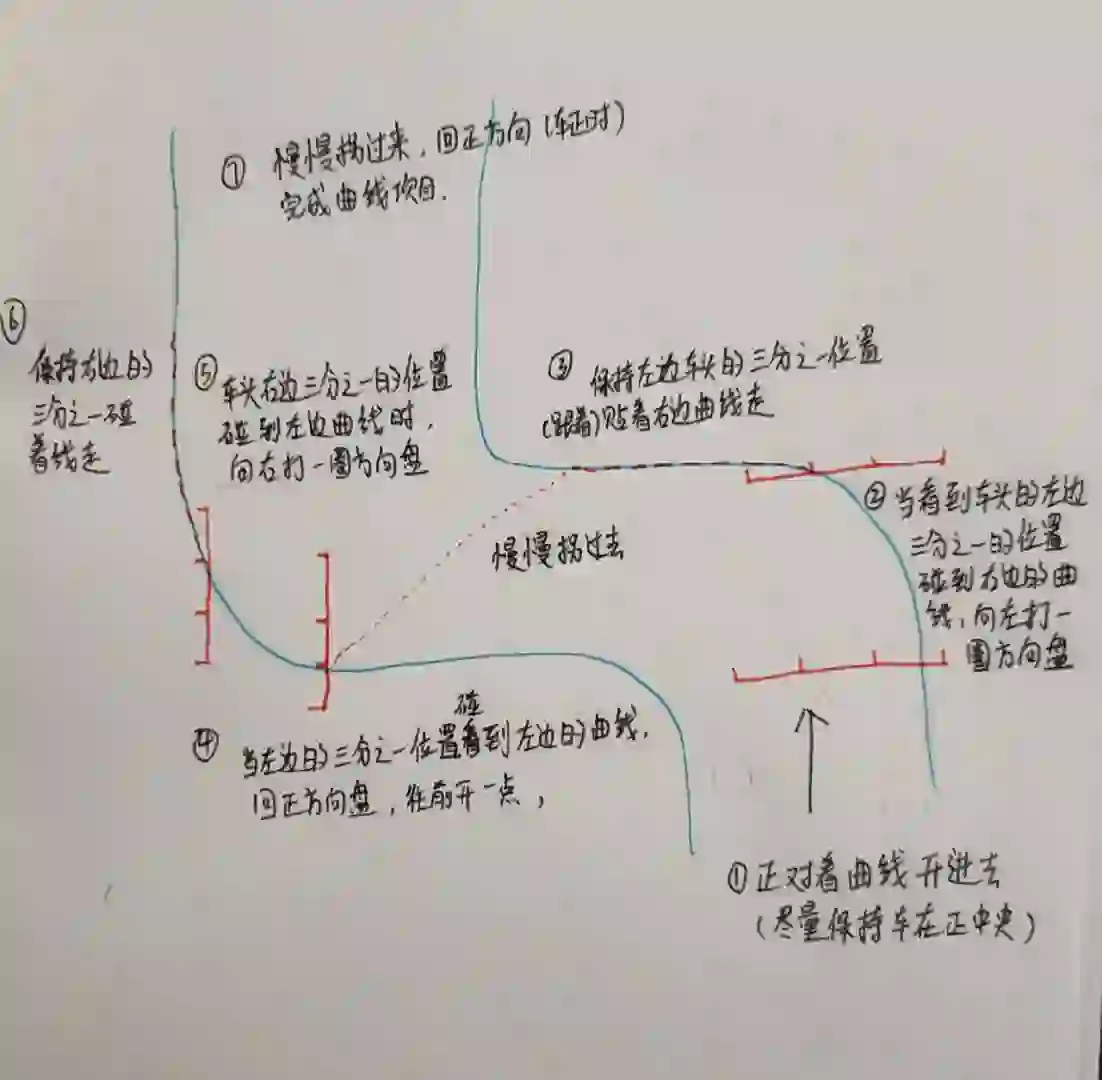 ⑦ 慢慢拐过来，回正方向（车正时）
完成曲线项目.
⑥
保持右边的
三分之一碰
着线走
⑤ 车头右边三分之一的位置
碰到左边曲线时，
向右打一圈方向盘
③ 保持左边车头的三分之一位置
(跟着)贴着右边曲线走
② 当看到车头的左边
三分之一的位置
碰到右边的曲
线，向左打一
圈方向盘
慢慢拐过去
碰
④ 当左边的三分之一位置看到左边的曲线，
回正方向盘，往前开一点，
① 正对着曲线开进去
（尽量保持车在正中央）